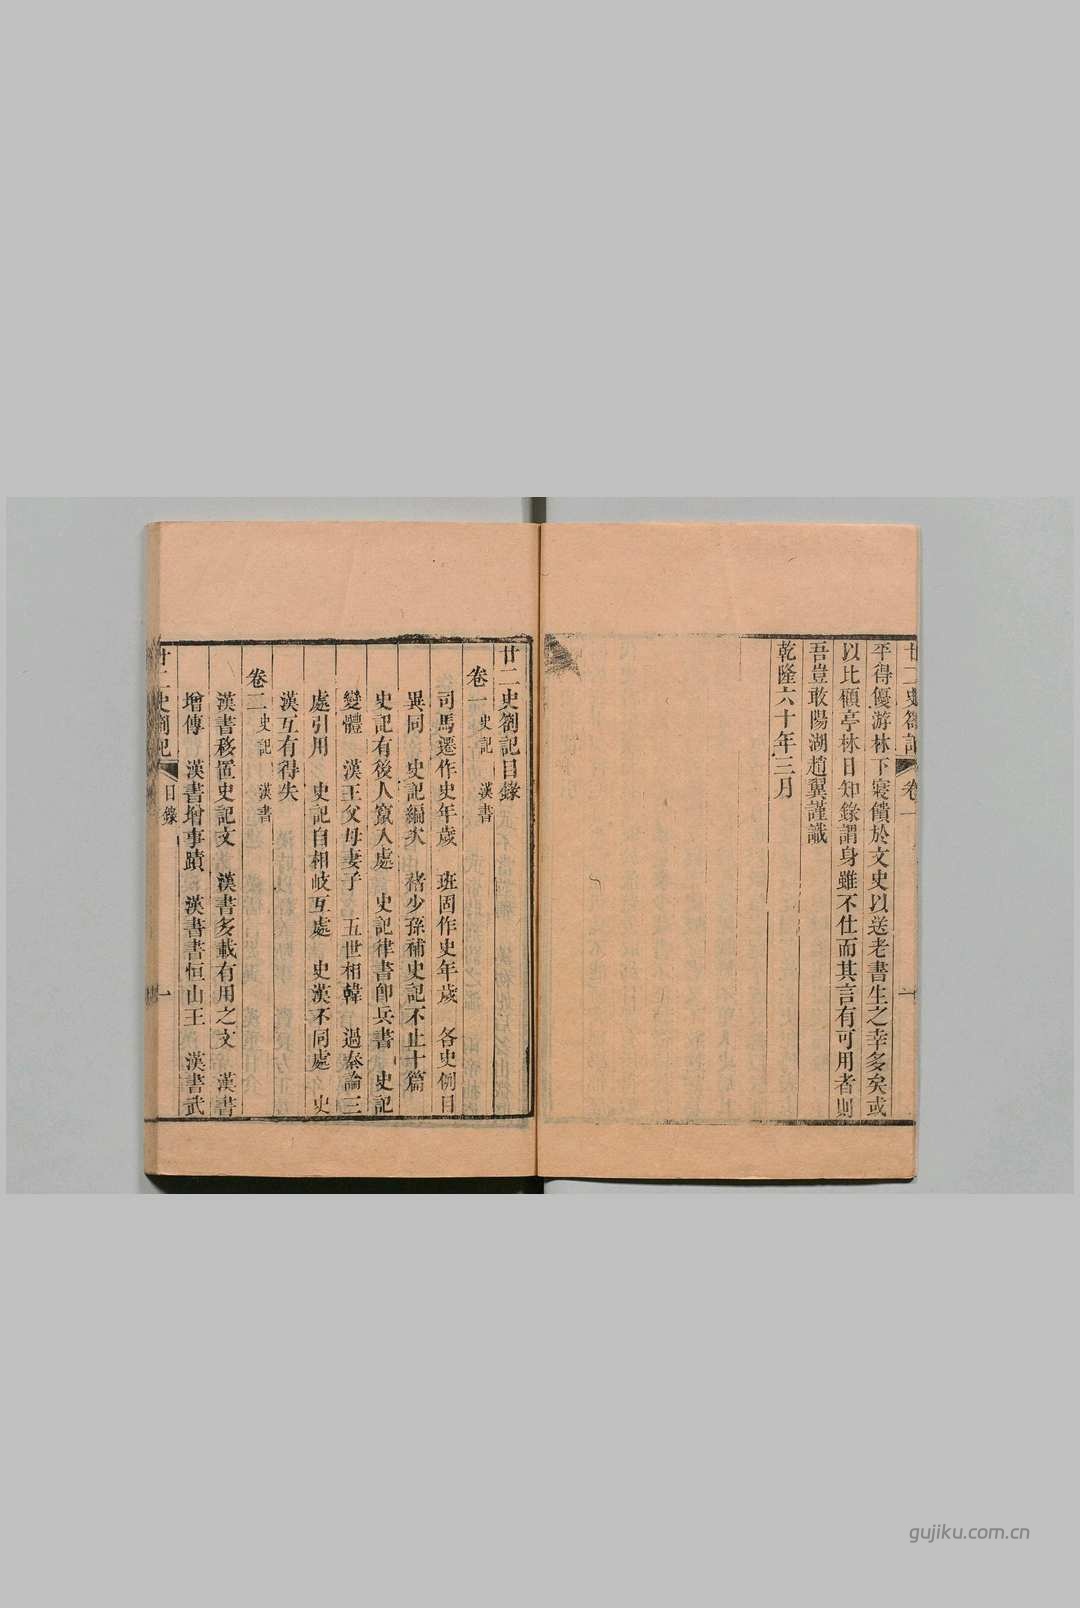 平得優游林下寢饋於文史以送老書生之幸多矣或
以比顧亭林日知錄謂身雖不仕而其言有可用者則
吾豈敢陽湖趙翼謹識
乾隆六十年三月
廿二史劄記目錄
卷一 史記 漢書
司馬遷作史年歲 班固作史年歲 各史例目
異同 史記編次 褚少孫補史記不止十篇
史記有後人竄入處 史記律書卽兵書 史記
變體 漢王父母妻子 五世相韓 過秦論三
處引用 史記自相岐互處 史漢不同處 史
漢互有得失
卷二 史記 漢書
漢書移置史記文 漢書多載有用之文 漢書
增傳 漢書增事蹟 漢書書恒山王 漢書武
廿二史劄記 目錄 一
gujiku.com.cn